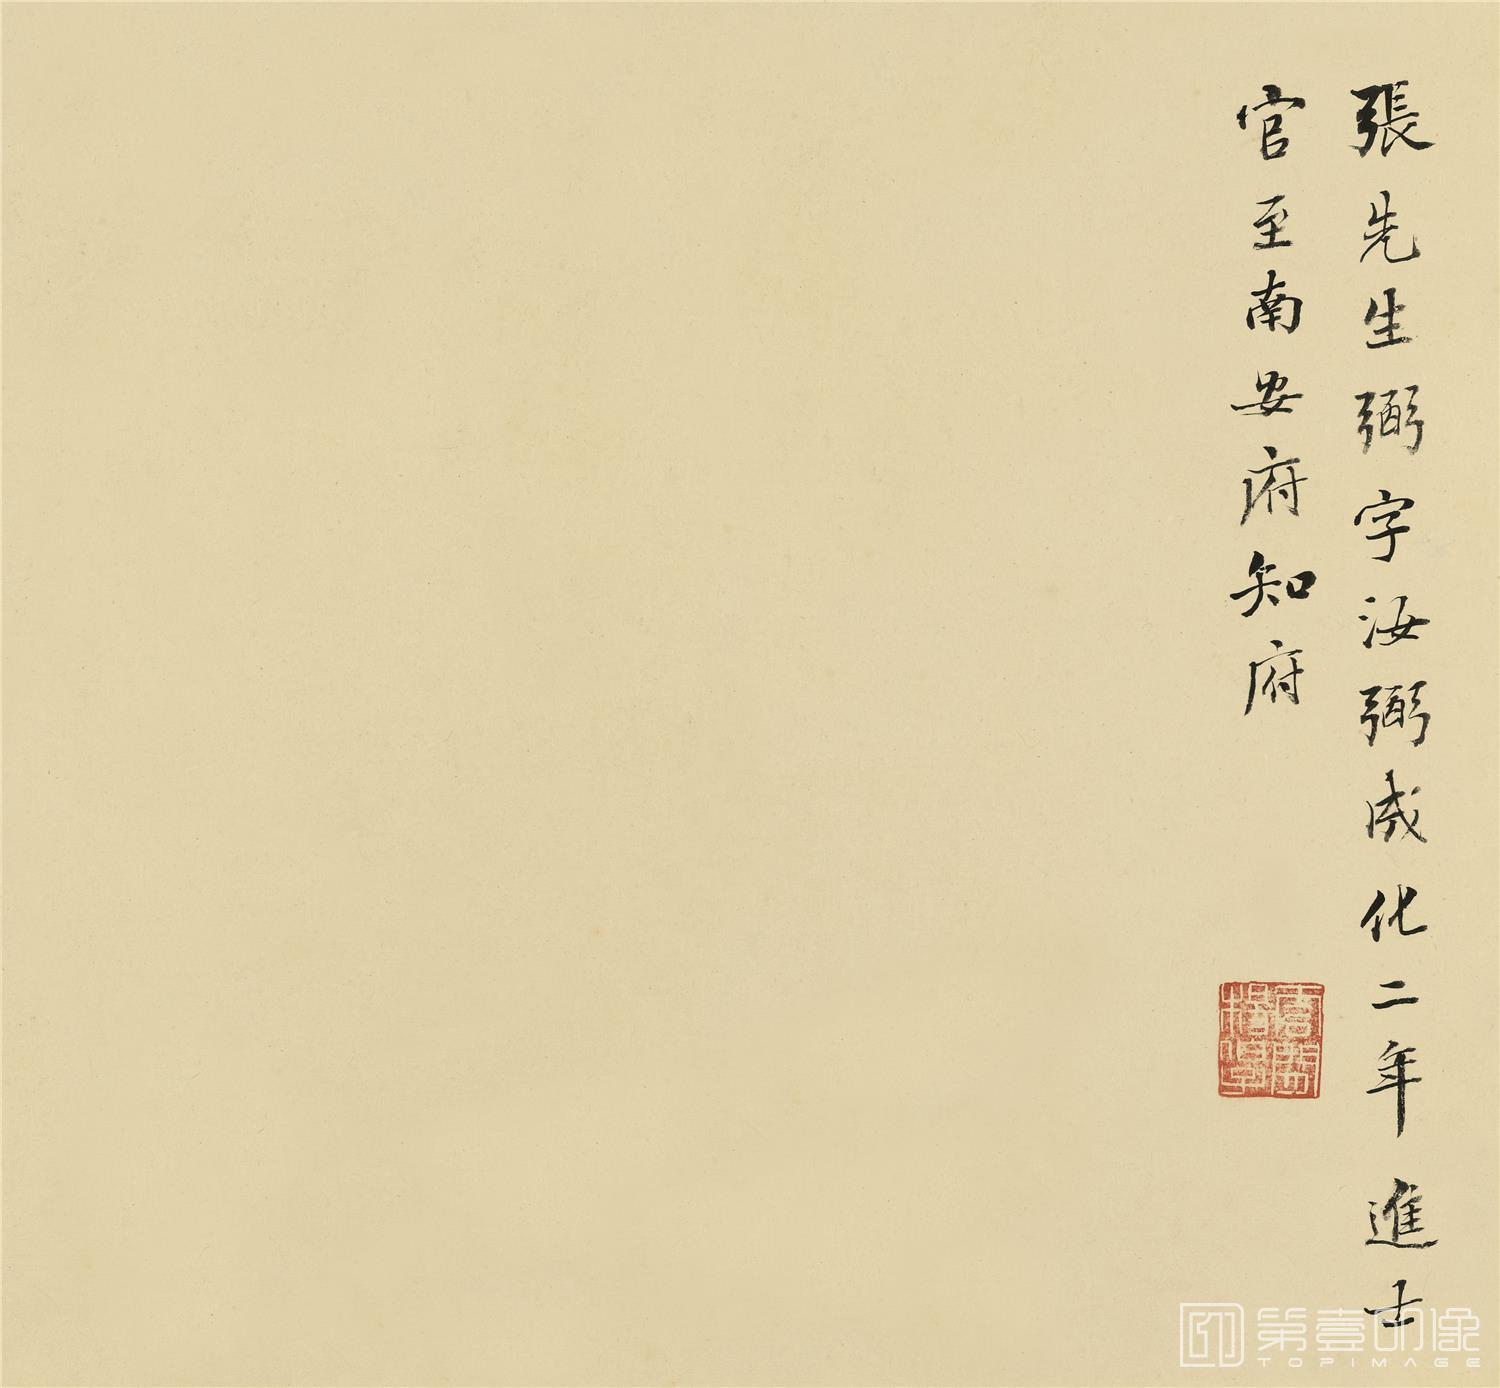 張先生弼字汝弼成化二年進士
官至南安府知府
第壹印像
TOPIMAGE